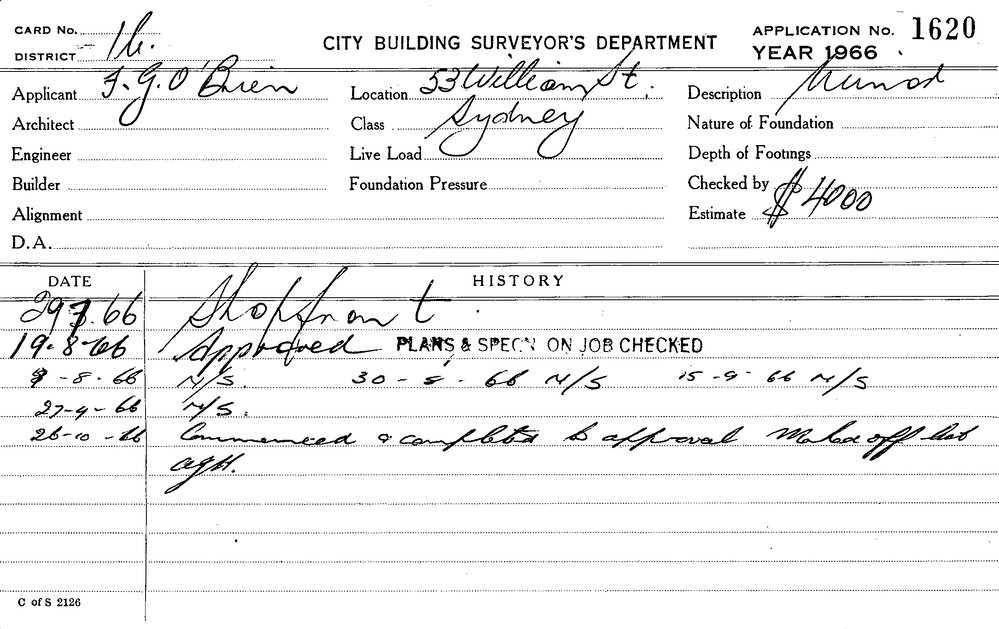 CARD No.
DISTRICT 1h.
CITY BUILDING SURVEYOR'S DEPARTMENT
APPLICATION No. 1620
YEAR 1966
Applicant F. G. O'Brien
Location 53 William St,
Description
Architect
Class Sydney
Nature of Foundation
Engineer
Live Load
Depth of Footings
Builder
Foundation Pressure
Checked by
Alignment
Estimate $4000
D.A.
DATE HISTORY
29.7.66 Shopfront
19-8-66 Approved PLANS & SPEC'N ON JOB CHECKED
-8-66 N/S. 30-8-66 N/S 15-9-66 N/S
27-9-66 N/S.
26-10-66 Commenced & completed to approval. off
C of S 2126